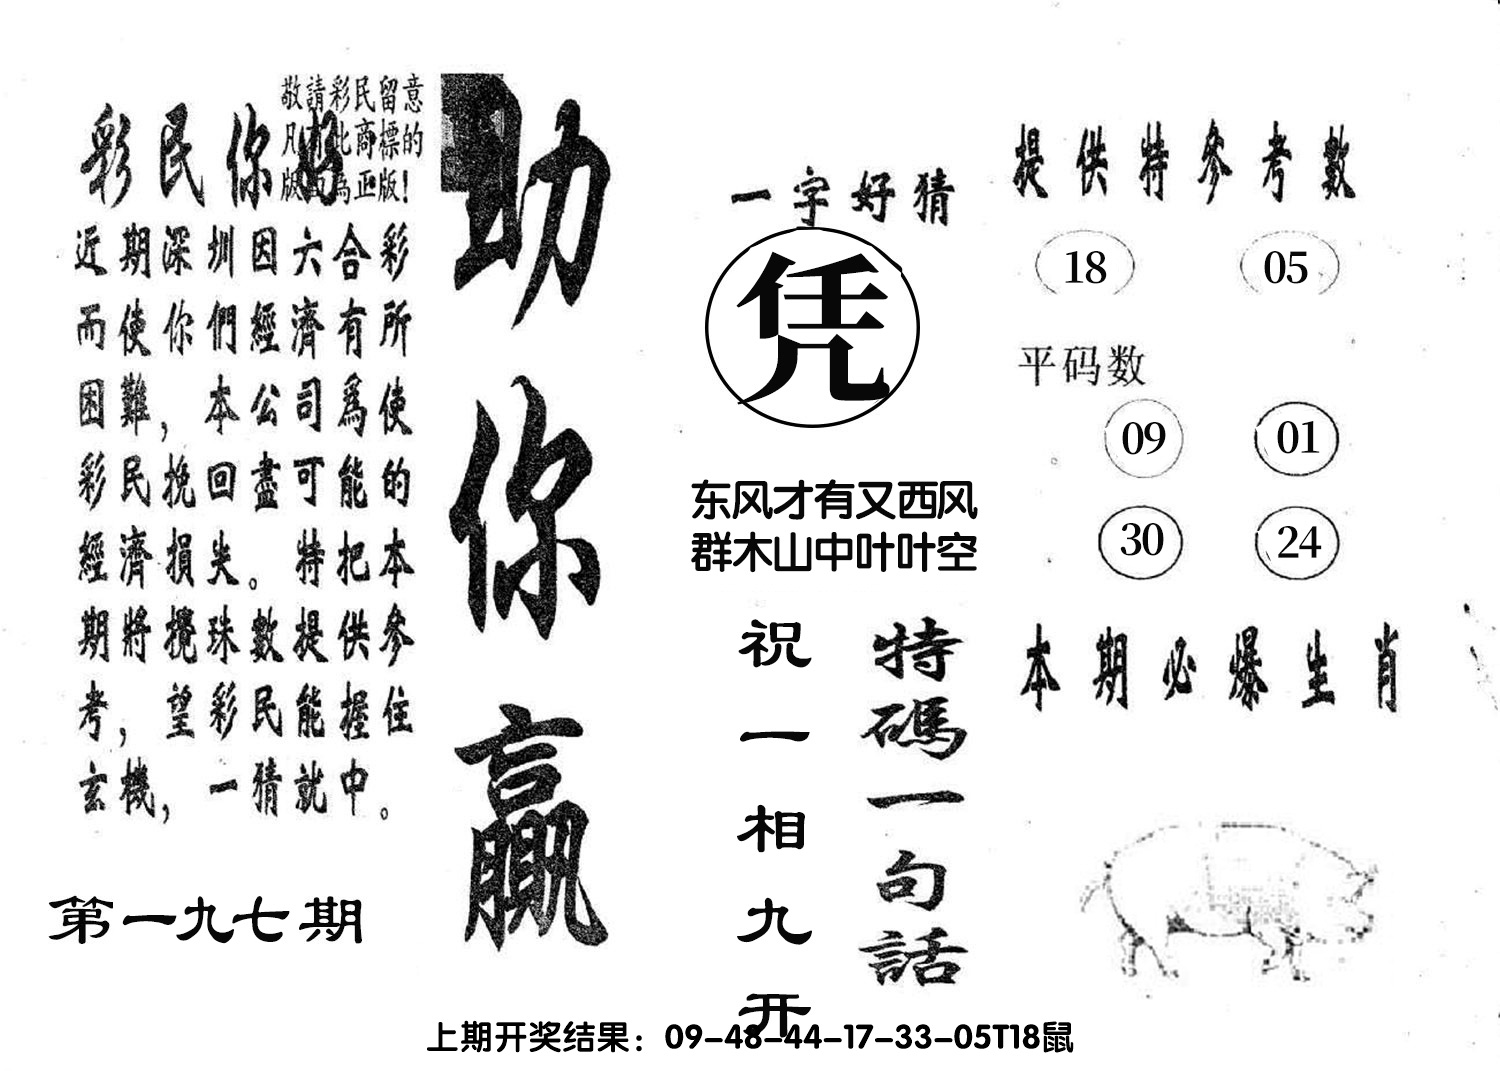 敬請彩民留意
凡有此商標的
版面為正版!
彩民你好
近期深圳因六合彩
而使你們經濟有所
困難，本公司爲使
彩民挽回盡可能的
經濟損失。特把本
期將攪珠數提供參
考，望彩民能握住
玄機，一猜就中。
第一九七期
助你贏
一字好猜
凭
东风才有又西风
群木山中叶叶空
特碼一句話
祝一相九开
提供特參考數
18 05
平码数
09 01
30 24
本期必爆生肖
上期开奖结果：09-48-44-17-33-05T18鼠